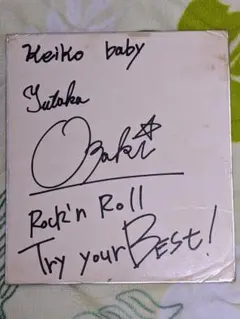 Keiko baby
Yutaka
Ozaki
Rock'n Roll
Try your Best!